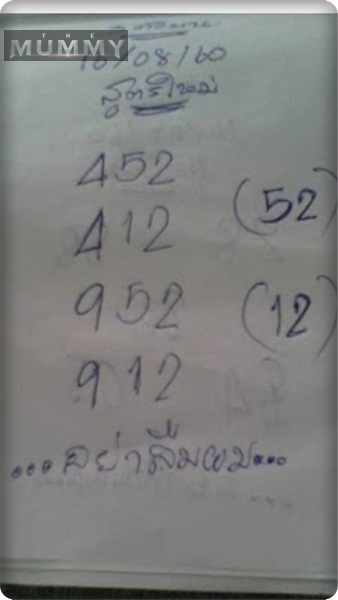 THE
MUMMY
16/08/60
สูตรใหม่
452
412 (52)
952 (12)
912
...อย่าลืมผม...